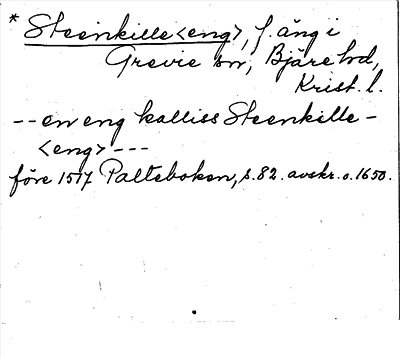 * Steenkille<eng>, f. äng i
Grevie sn, Bjäre hd,
Krist. l.
-- en eng kalliss Steenkille-
<eng> ---
före 1517 Palteboken, s. 82. avskr. o. 1650.